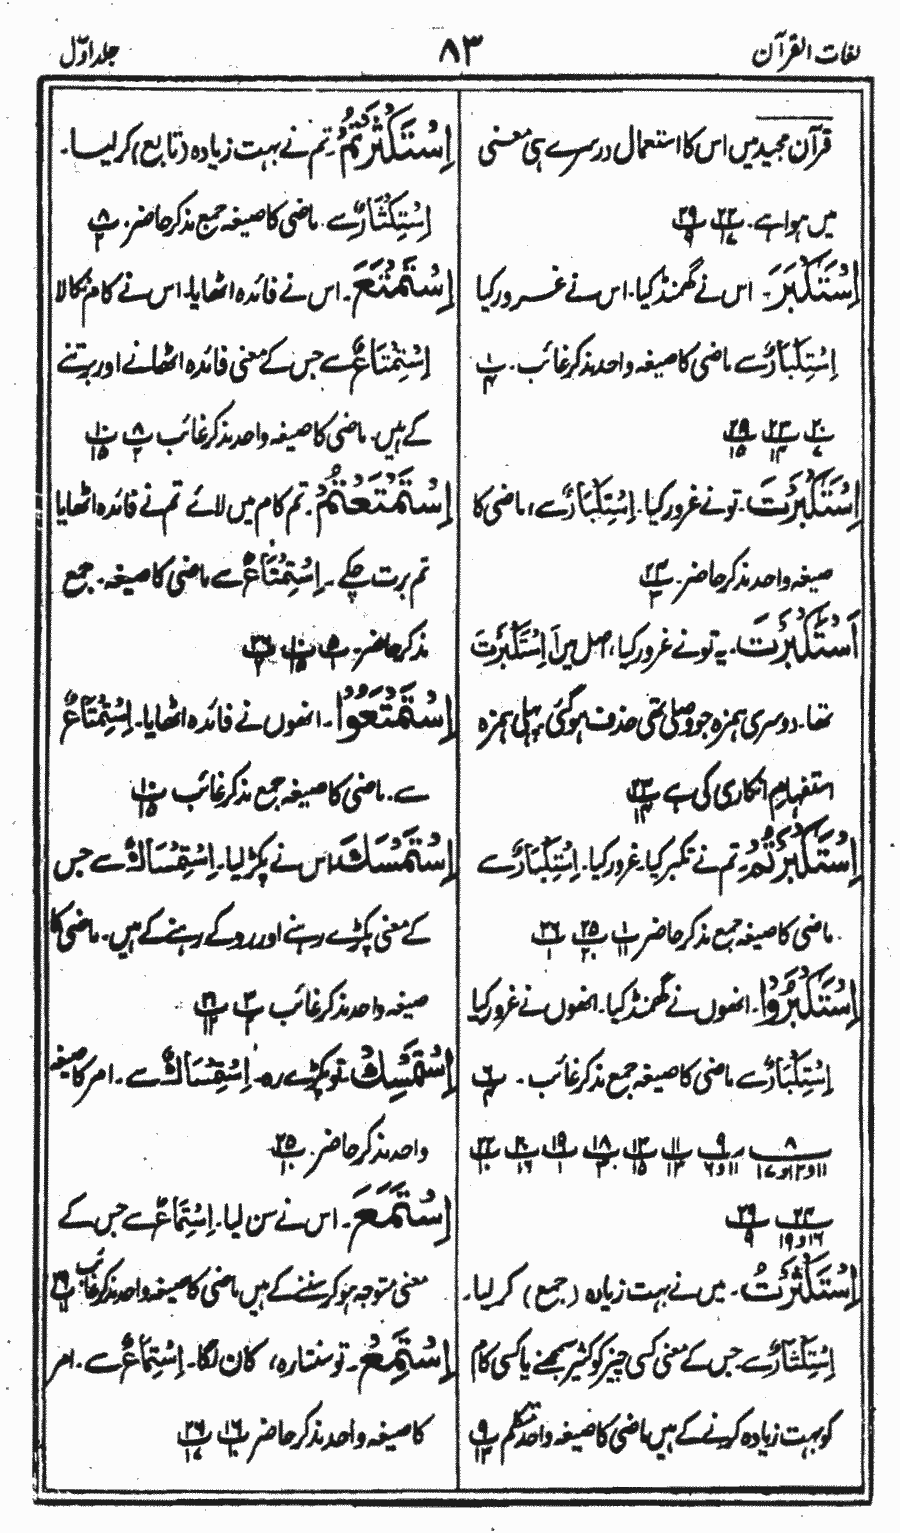 لغات القرآن
۸۳
جلد اوّل
قرآن مجید میں اس کا استعمال دوسرے ہی معنی
میں ہوا ہے۔ پ۲۲ ۱۷ پ۲۹ ۹
اِسْتَكْبَرَ۔ اس نے گھمنڈ کیا۔ اس نے غرور کیا
اِسْتِكْبَارٌ سے ماضی کا صیغہ واحد مذکر غائب۔ پ۱ ۴
پ۲۰ ۷ پ۲۳ ۱۴ پ۲۹ ۱۵
اِسْتَكْبَرْتَ۔ تو نے غرور کیا۔ اِسْتِكْبَارٌ سے، ماضی کا
صیغہ واحد مذکر حاضر۔ پ۲۳ ۳
اَسْتَكْبَرْتَ۔ یہ تو نے غرور کیا، اصل میں اَ اِسْتَكْبَرْتَ
تھا۔ دوسری ہمزہ جو وصلی تھی حذف ہوگئی، پہلی ہمزہ
استفہام انکاری کی ہے پ۲۳ ۱۴
اِسْتَكْبَرْتُمْ۔ تم نے تکبر کیا۔ غرور کیا۔ اِسْتِكْبَارٌ سے
ماضی کا صیغہ جمع مذکر حاضر پ۱ ۱۱ پ۲۵ ۲۰ پ۲۶ ۱
اِسْتَكْبَرُوْا۔ انھوں نے گھمنڈ کیا۔ انھوں نے غرور کیا
اِسْتِكْبَارٌ سے ماضی کا صیغہ جمع مذکر غائب۔ پ۶ ۴
پ۸ ۱۱و۱۲و۱۷ پ۹ ۶و۱۱ پ۱۱ ۱۳ پ۱۳ ۱۵ پ۱۸ ۳ پ۱۹ ۱ پ۲۰ ۱۶ پ۲۲ ۱۰
پ۲۴ ۱۶و۱۹ پ۲۹ ۹
اِسْتَكْثَرْتُ۔ میں نے بہت زیادہ (جمع) کر لیا۔
اِسْتِكْثَارٌ سے جس کے معنی کسی چیز کو کثیر سمجھنے یا کسی کام
کو بہت زیادہ کرنے کے ہیں ماضی کا صیغہ واحد متکلم پ۹ ۱۳
اِسْتَكْثَرْتُمْ۔ تم نے بہت زیادہ (تابع) کر لیا۔
اِسْتِكْثَارٌ سے۔ ماضی کا صیغہ جمع مذکر حاضر۔ پ۸ ۲
اِسْتَمْتَعَ۔ اس نے فائدہ اٹھایا۔ اس نے کام نکالا
اِسْتِمْتَاعٌ سے جس کے معنی فائدہ اٹھانے اور برتنے
کے ہیں۔ ماضی کا صیغہ واحد مذکر غائب پ۸ ۲ پ۱۰ ۱۵
اِسْتَمْتَعْتُمْ۔ تم کام میں لائے تم نے فائدہ اٹھایا
تم برت چکے۔ اِسْتِمْتَاعٌ سے ماضی کا صیغہ۔ جمع
مذکر حاضر۔ پ۵ ۱ پ۱۰ ۱۵ پ۲۶ ۲
اِسْتَمْتَعُوْا۔ انھوں نے فائدہ اٹھایا۔ اِسْتِمْتَاعٌ
سے۔ ماضی کا صیغہ جمع مذکر غائب پ۱۰ ۱۵
اِسْتَمْسَكَ اس نے پکڑ لیا۔ اِسْتِمْسَاكٌ سے جس
کے معنی پکڑے رہنے اور روکے رہنے کے ہیں۔ ماضی کا
صیغہ واحد مذکر غائب پ۳ ۲ پ۲۱ ۱۲
اِسْتَمْسِكْ۔ تو پکڑے رہ۔ اِسْتِمْسَاكٌ سے۔ امر کا صیغہ
واحد مذکر حاضر۔ پ۲۵ ۱۰
اِسْتَمَعَ۔ اس نے سن لیا۔ اِسْتِمَاعٌ سے جس کے
معنی متوجہ ہو کر سننے کے ہیں ماضی کا صیغہ واحد مذکر غائب پ۲۹ ۱۱
اِسْتَمِعْ۔ تو سنتا رہ، کان لگا۔ اِسْتِمَاعٌ سے۔ امر
کا صیغہ واحد مذکر حاضر پ۱۶ ۱۰ پ۲۶ ۱۷